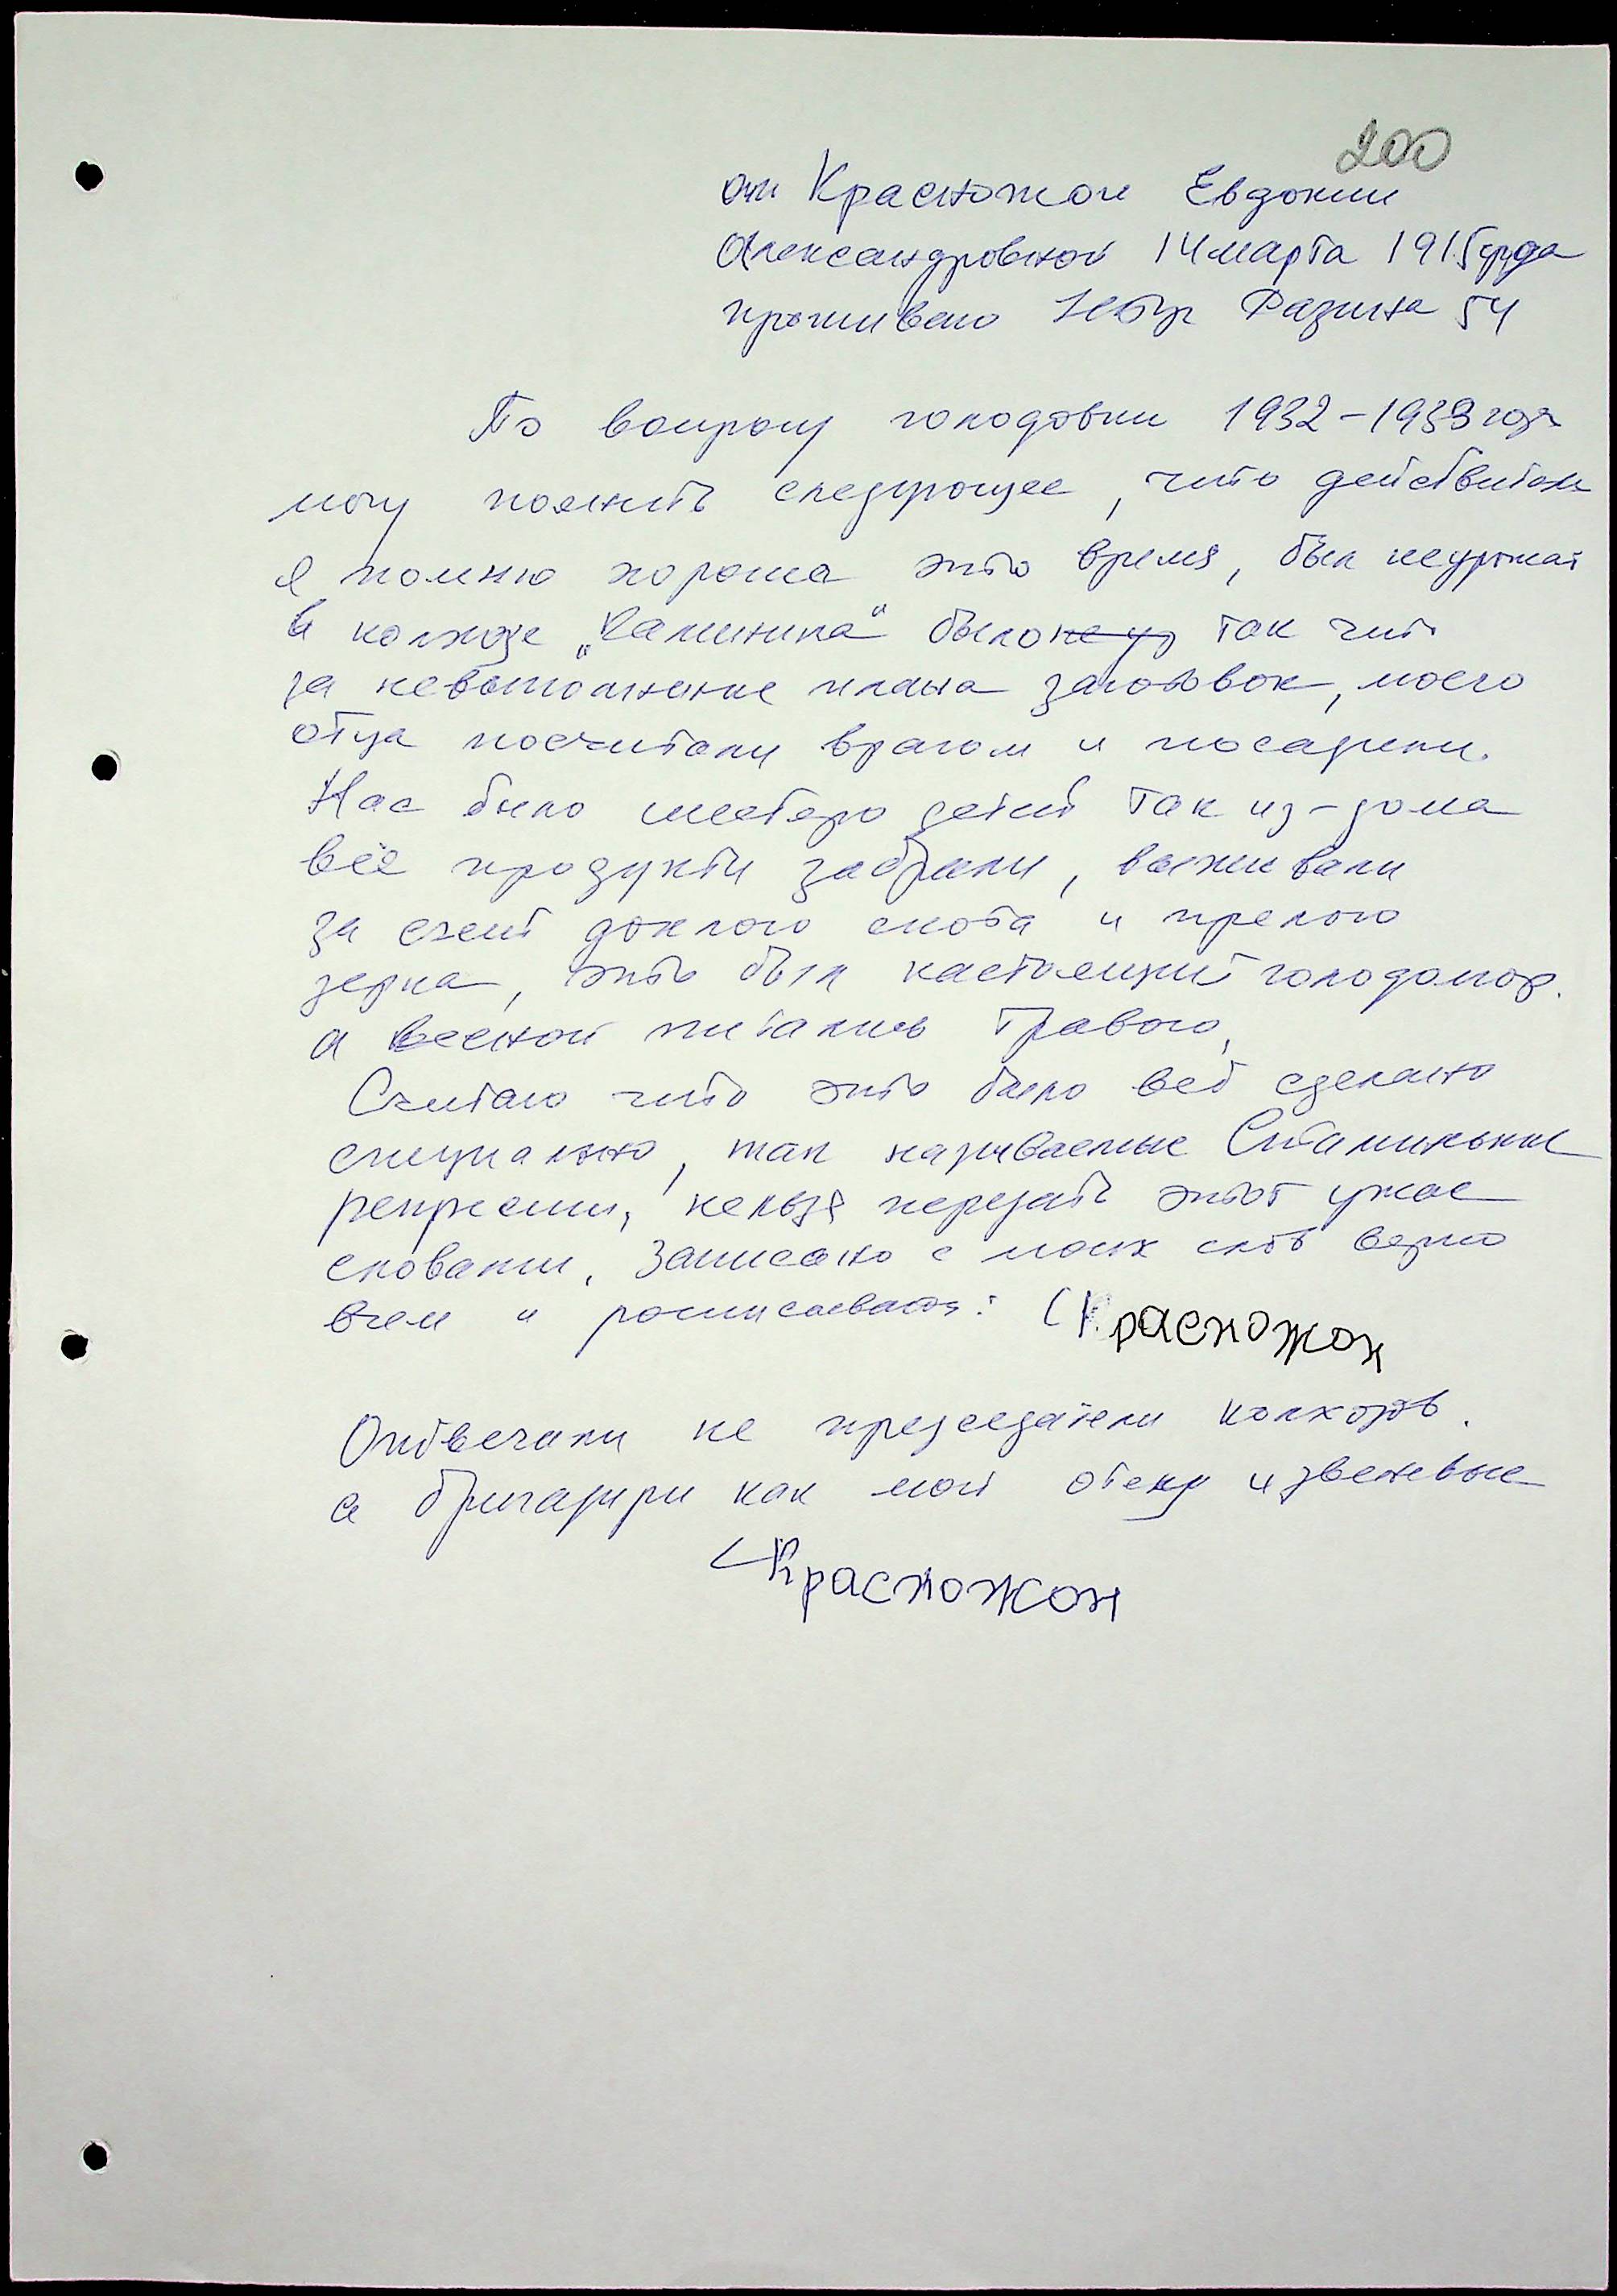 200
от Красножон Евдокии
Александровной 14 марта 1915 года
проживаю Разина 54
По вопросу голодовки 1932-1933 года
могу пояснить следующее, что действитель
я помню хороша это время, был неурожай
в колхозе „Калинина" было так что
за невыполнение плана заготовок, моего
отца посчитали врагом и посадили.
Нас было шестеро детей так из-дома
всё продукты забрали, выживали
за счет дохлого скота и прелого
зерна, это был настоящий голодомор.
а весной питались травою,
Считаю что это было всё сделано
специально, так называемые Сталинские
репрессии, нельзя передать этот ужас
словами, Записано с моих слов верно
в чем и росписываюсь: Красножон
Отвечали не председатели колхозов.
а бригадиры как мой отец и звеневые
Красножон